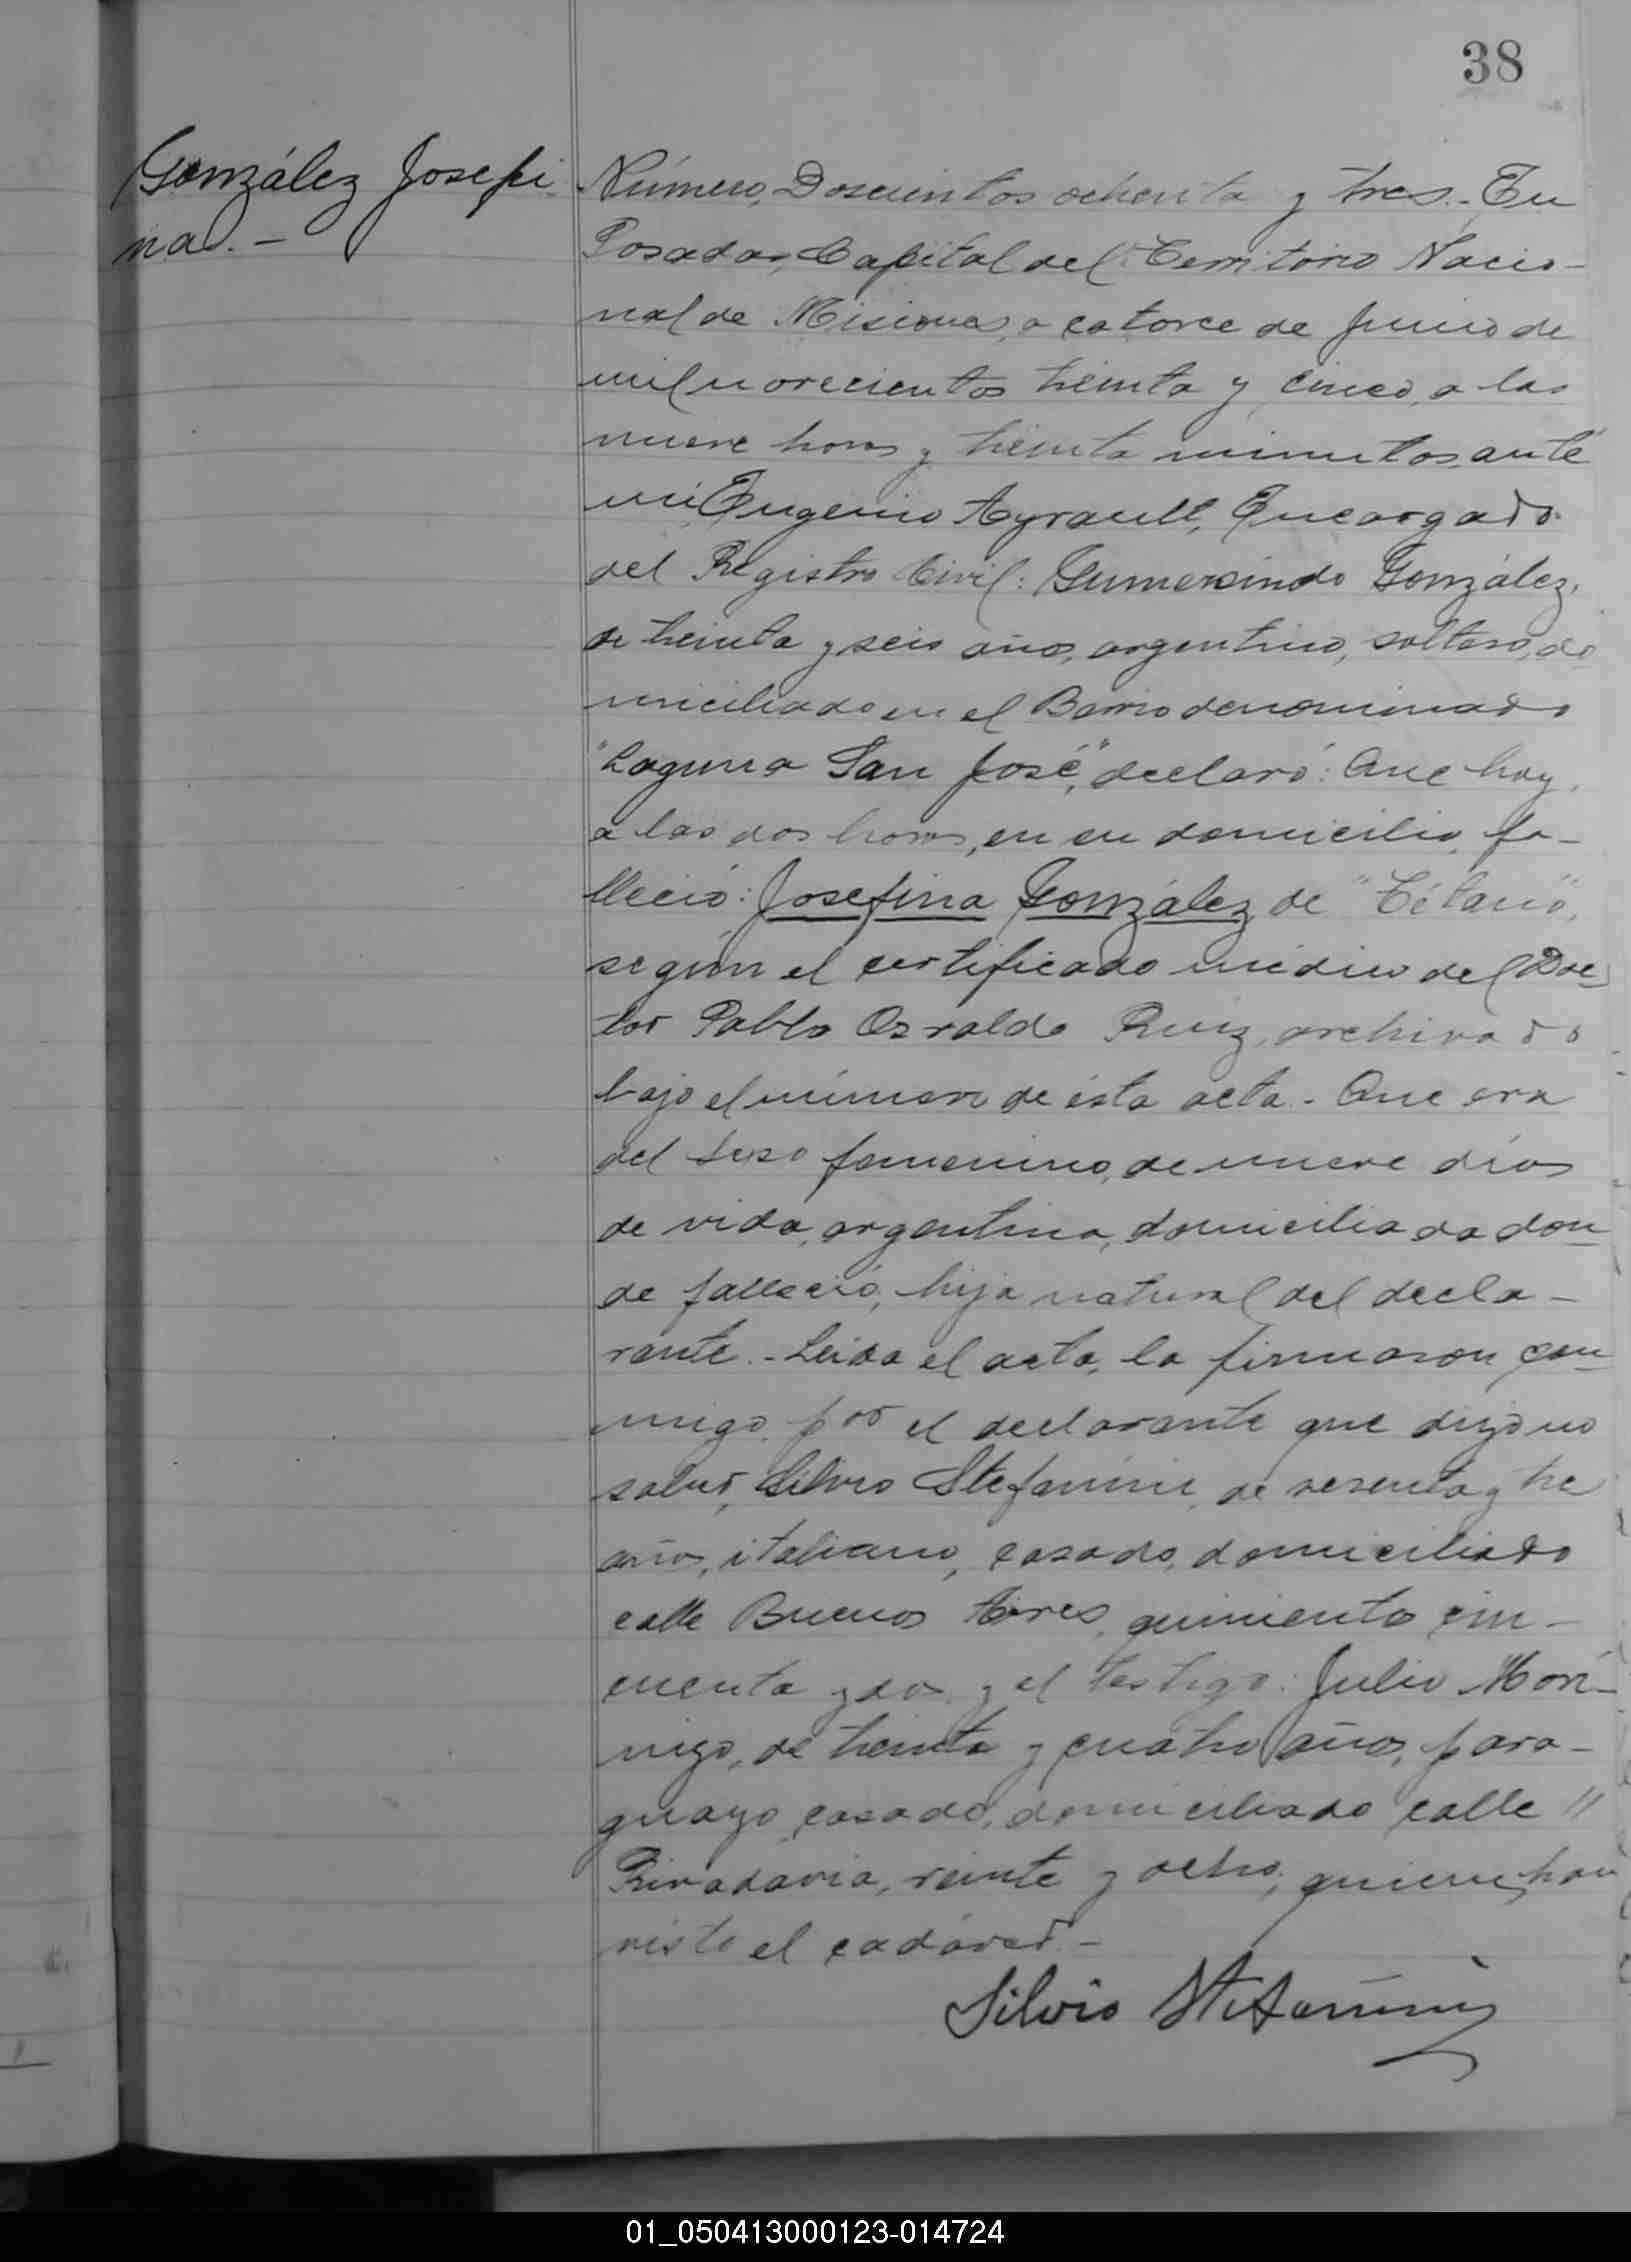 38
González Josefi
na. -
Número, Doscientos ochenta y tres. - En
Posadas, Capital del Territorio Nacio-
nal de Misiones, a catorce de Junio de
mil novecientos treinta y cinco, a las
nueve horas y treinta minutos, ante
mí Eugenio Ayrault, Encargado
del Registro Civil: Gumersindo González,
de treinta y seis años, argentino, soltero, do
miciliado en el Barrio denominado
"Laguna San José", declaró: Que hoy,
a las dos horas, en su domicilio, fa-
lleció: Josefina González de "Tétano",
según el certificado médico del Doc
tor Pablo Osvaldo Ruiz, archivado
bajo el número de ésta acta. - Que era
del sexo femenino, de nueve días
de vida, argentina, domiciliada don
de falleció, hija natural del decla-
rante. - Leída el acta, la firmaron con
migo, por el declarante que dijo no
saber, Silvio Stefanini, de sesenta y tre
años, italiano, casado, domiciliado
calle Buenos Aires, quinientos cin-
cuenta y dos, y el testigo: Julio Morí-
nigo, de treinta y cuatro años, para-
guayo, casado, domiciliado calle "
Rivadavia, veinte y ocho, quienes han
visto el cadáver. -
Silvio Stefanini
01_050413000123-014724